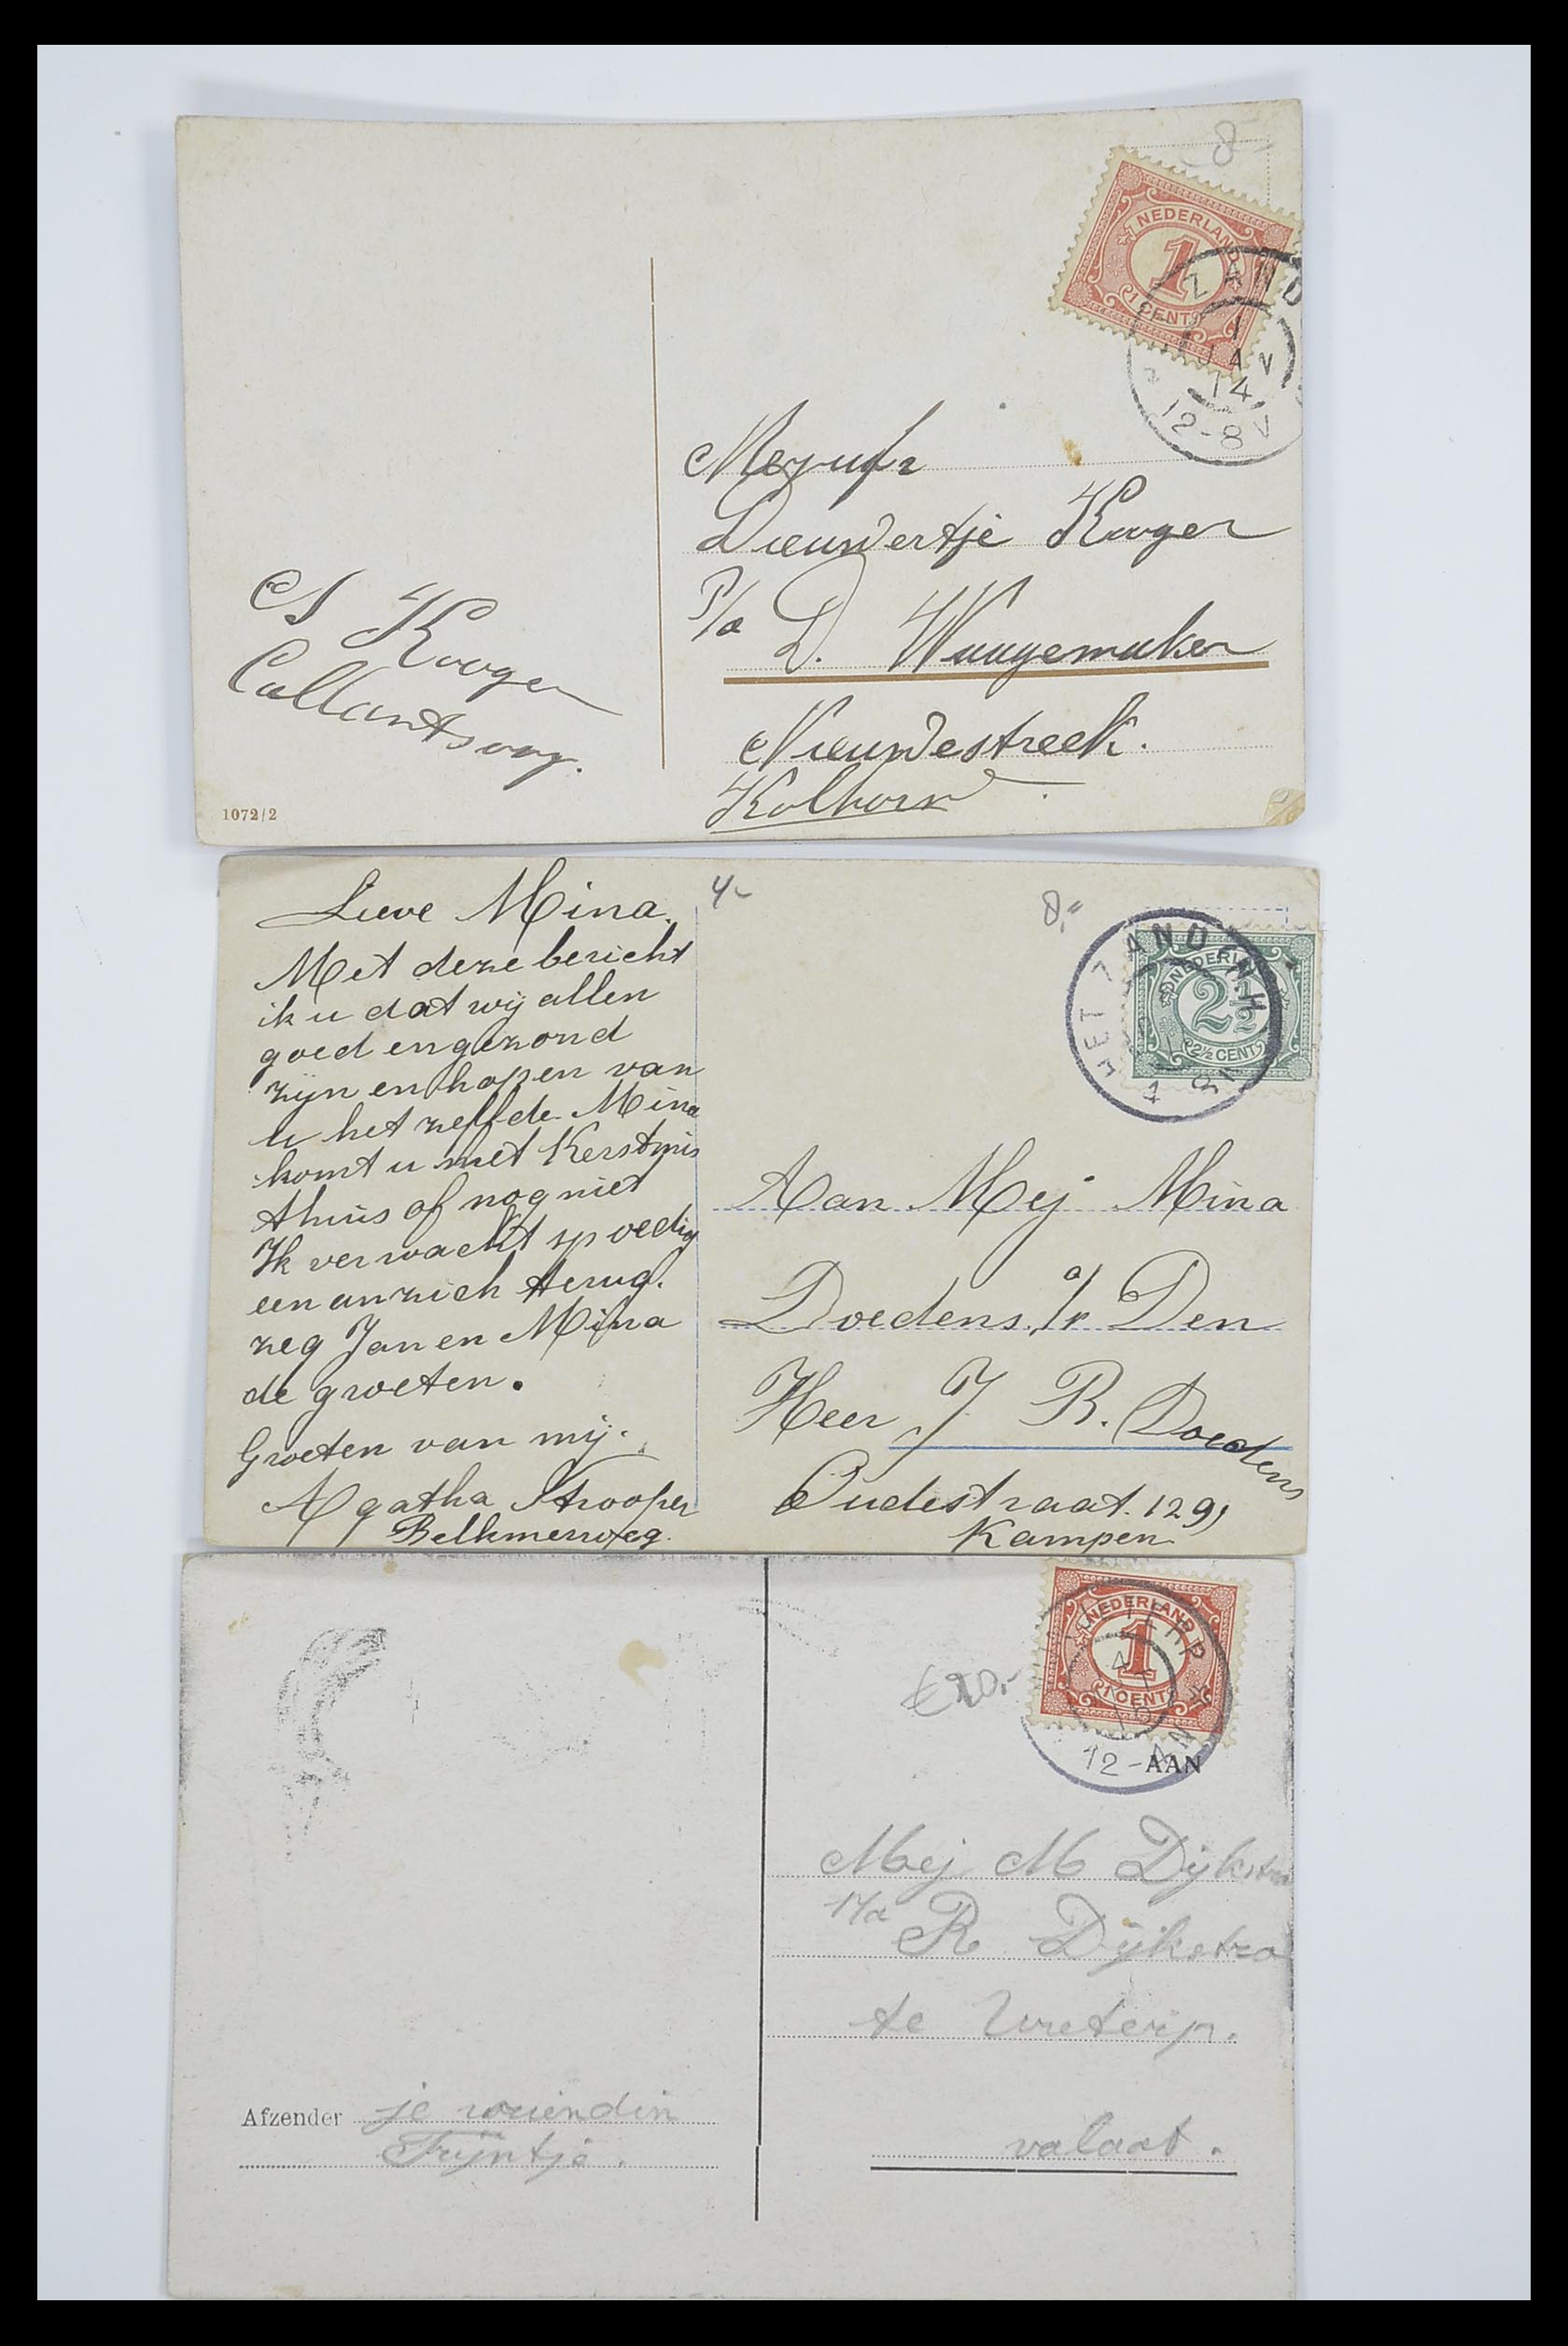 8-
NEDERLAND
1
1 CENT
ZAND
1
JAN
14
12-8 V
Mejufr
Dieuwertje Kooger
P/a D. Waagemaker
Nieuwestreek.
Kolhorn
S Kooger
Callantsoog.
1072/2
4-
8,-
NEDERLAND
2½
2½ CENT
HET ZAND (N.H.
Lieve Mina.
Met deze bericht
ik u dat wij allen
goed en gezond
zijn en hopen van
u het zelfde Mina
komt u met Kerstmis
thuis of nog niet
Ik verwacht spoedig
een anzich terug.
zeg Jan en Mina
de groeten.
Groeten van mij.
Agatha Strooper
Belkmerweg.
Aan Mej Mina
Doedens. a/v Den
Heer J R. Doedens
Oudestraat. 129,
Kampen
€20,-
NEDERLAND
1
1 CENT
4
12-
N
AAN
Mej M Dijkstra
P/a R Dijkstra
te Ureterp.
valaat.
Afzender je vriendin
Trijntje.